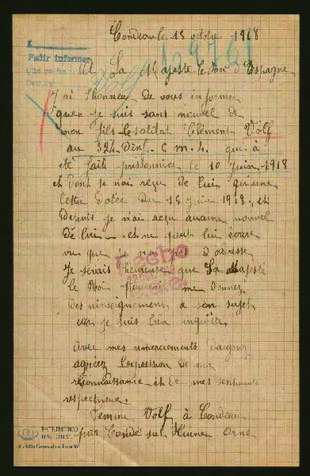 Condeau le 15 octobre 1918
Pedir informes
A Sa Majesté le Roi d'Espagne
J'ai l'honneur de vous informer
que je suis sans nouvel de
mon fils le soldat Clément Völf
au 324 Inf. C. M. 4. qui à
été fait prisonnier le 10 Juin 1918
et dont je n'ai reçu de lui qu'une
lettre datée du 15 Juin 1918, et
depuis je n'ai reçu aucune nouvel
de lui et ne peut lui écrire
vu que je n'ai pas d'adresse
Je serais heureuse que Sa Majesté
le Roi me donner
des renseignement a son sujet
car je suis bien inquiète.
Avec mes remerciements
agréez l'expression de ma
reconnaissance et de mes sentiments
respectueux.
Femme Völf à Condeau
par Condé sur Huisne Orne
PATRIMONIO
NACIONAL